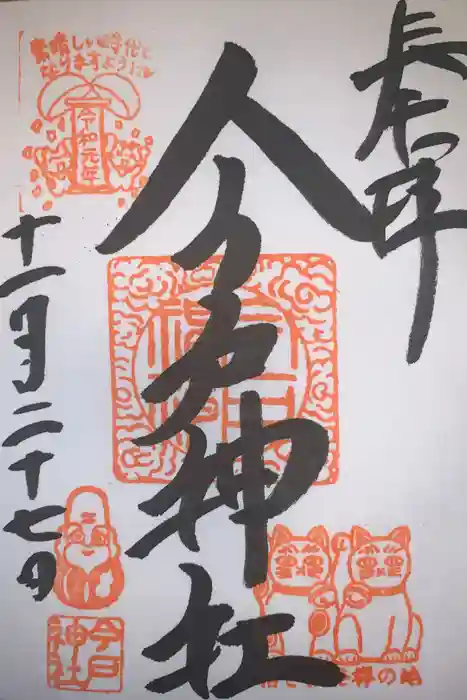 奉拝
今戸神社
素晴しい時代と
なりますように
令和元年
十一月二十七日
今戸
神社